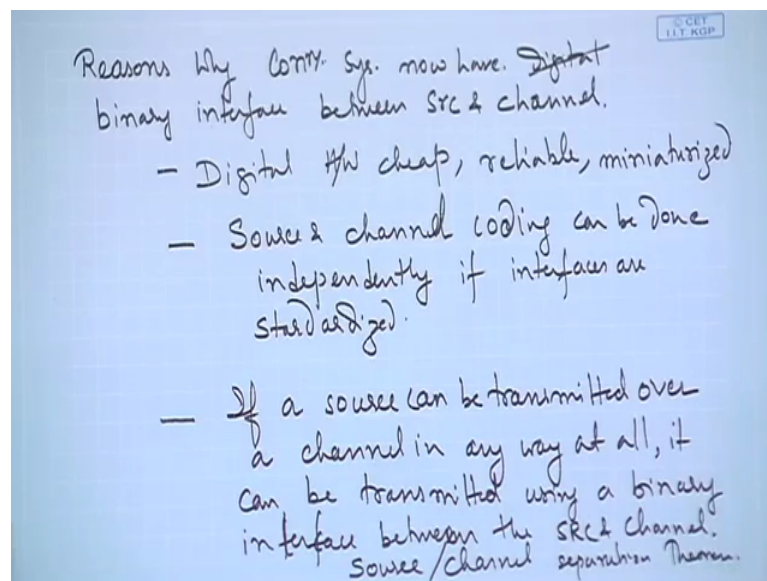 © CET
I.I.T. KGP
Reasons why Comm. Sys. now have. Digital
binary interface between Src & channel.
- Digital H/W cheap, reliable, miniaturized
- Source & channel coding can be done
independently if interfaces are
standardized.
- If a source can be transmitted over
a channel in any way at all, it
can be transmitted using a binary
interface between the SRC & Channel.
Source/Channel separation Theorem.